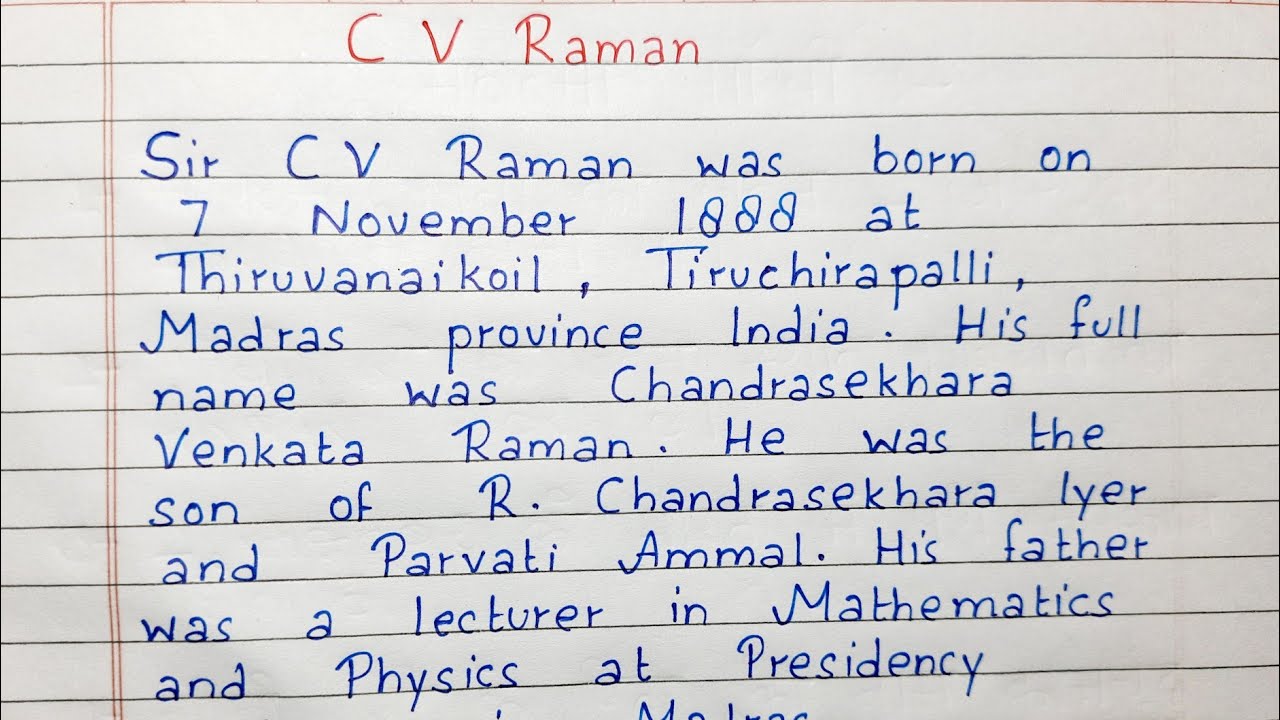 C V Raman
Sir C V Raman was born on
7 November 1888 at
Thiruvanaikoil, Tiruchirapalli,
Madras province India. His full
name was Chandrasekhara
Venkata Raman. He was the
son of R. Chandrasekhara Iyer
and Parvati Ammal. His father
was a lecturer in Mathematics
and Physics at Presidency
in Madras